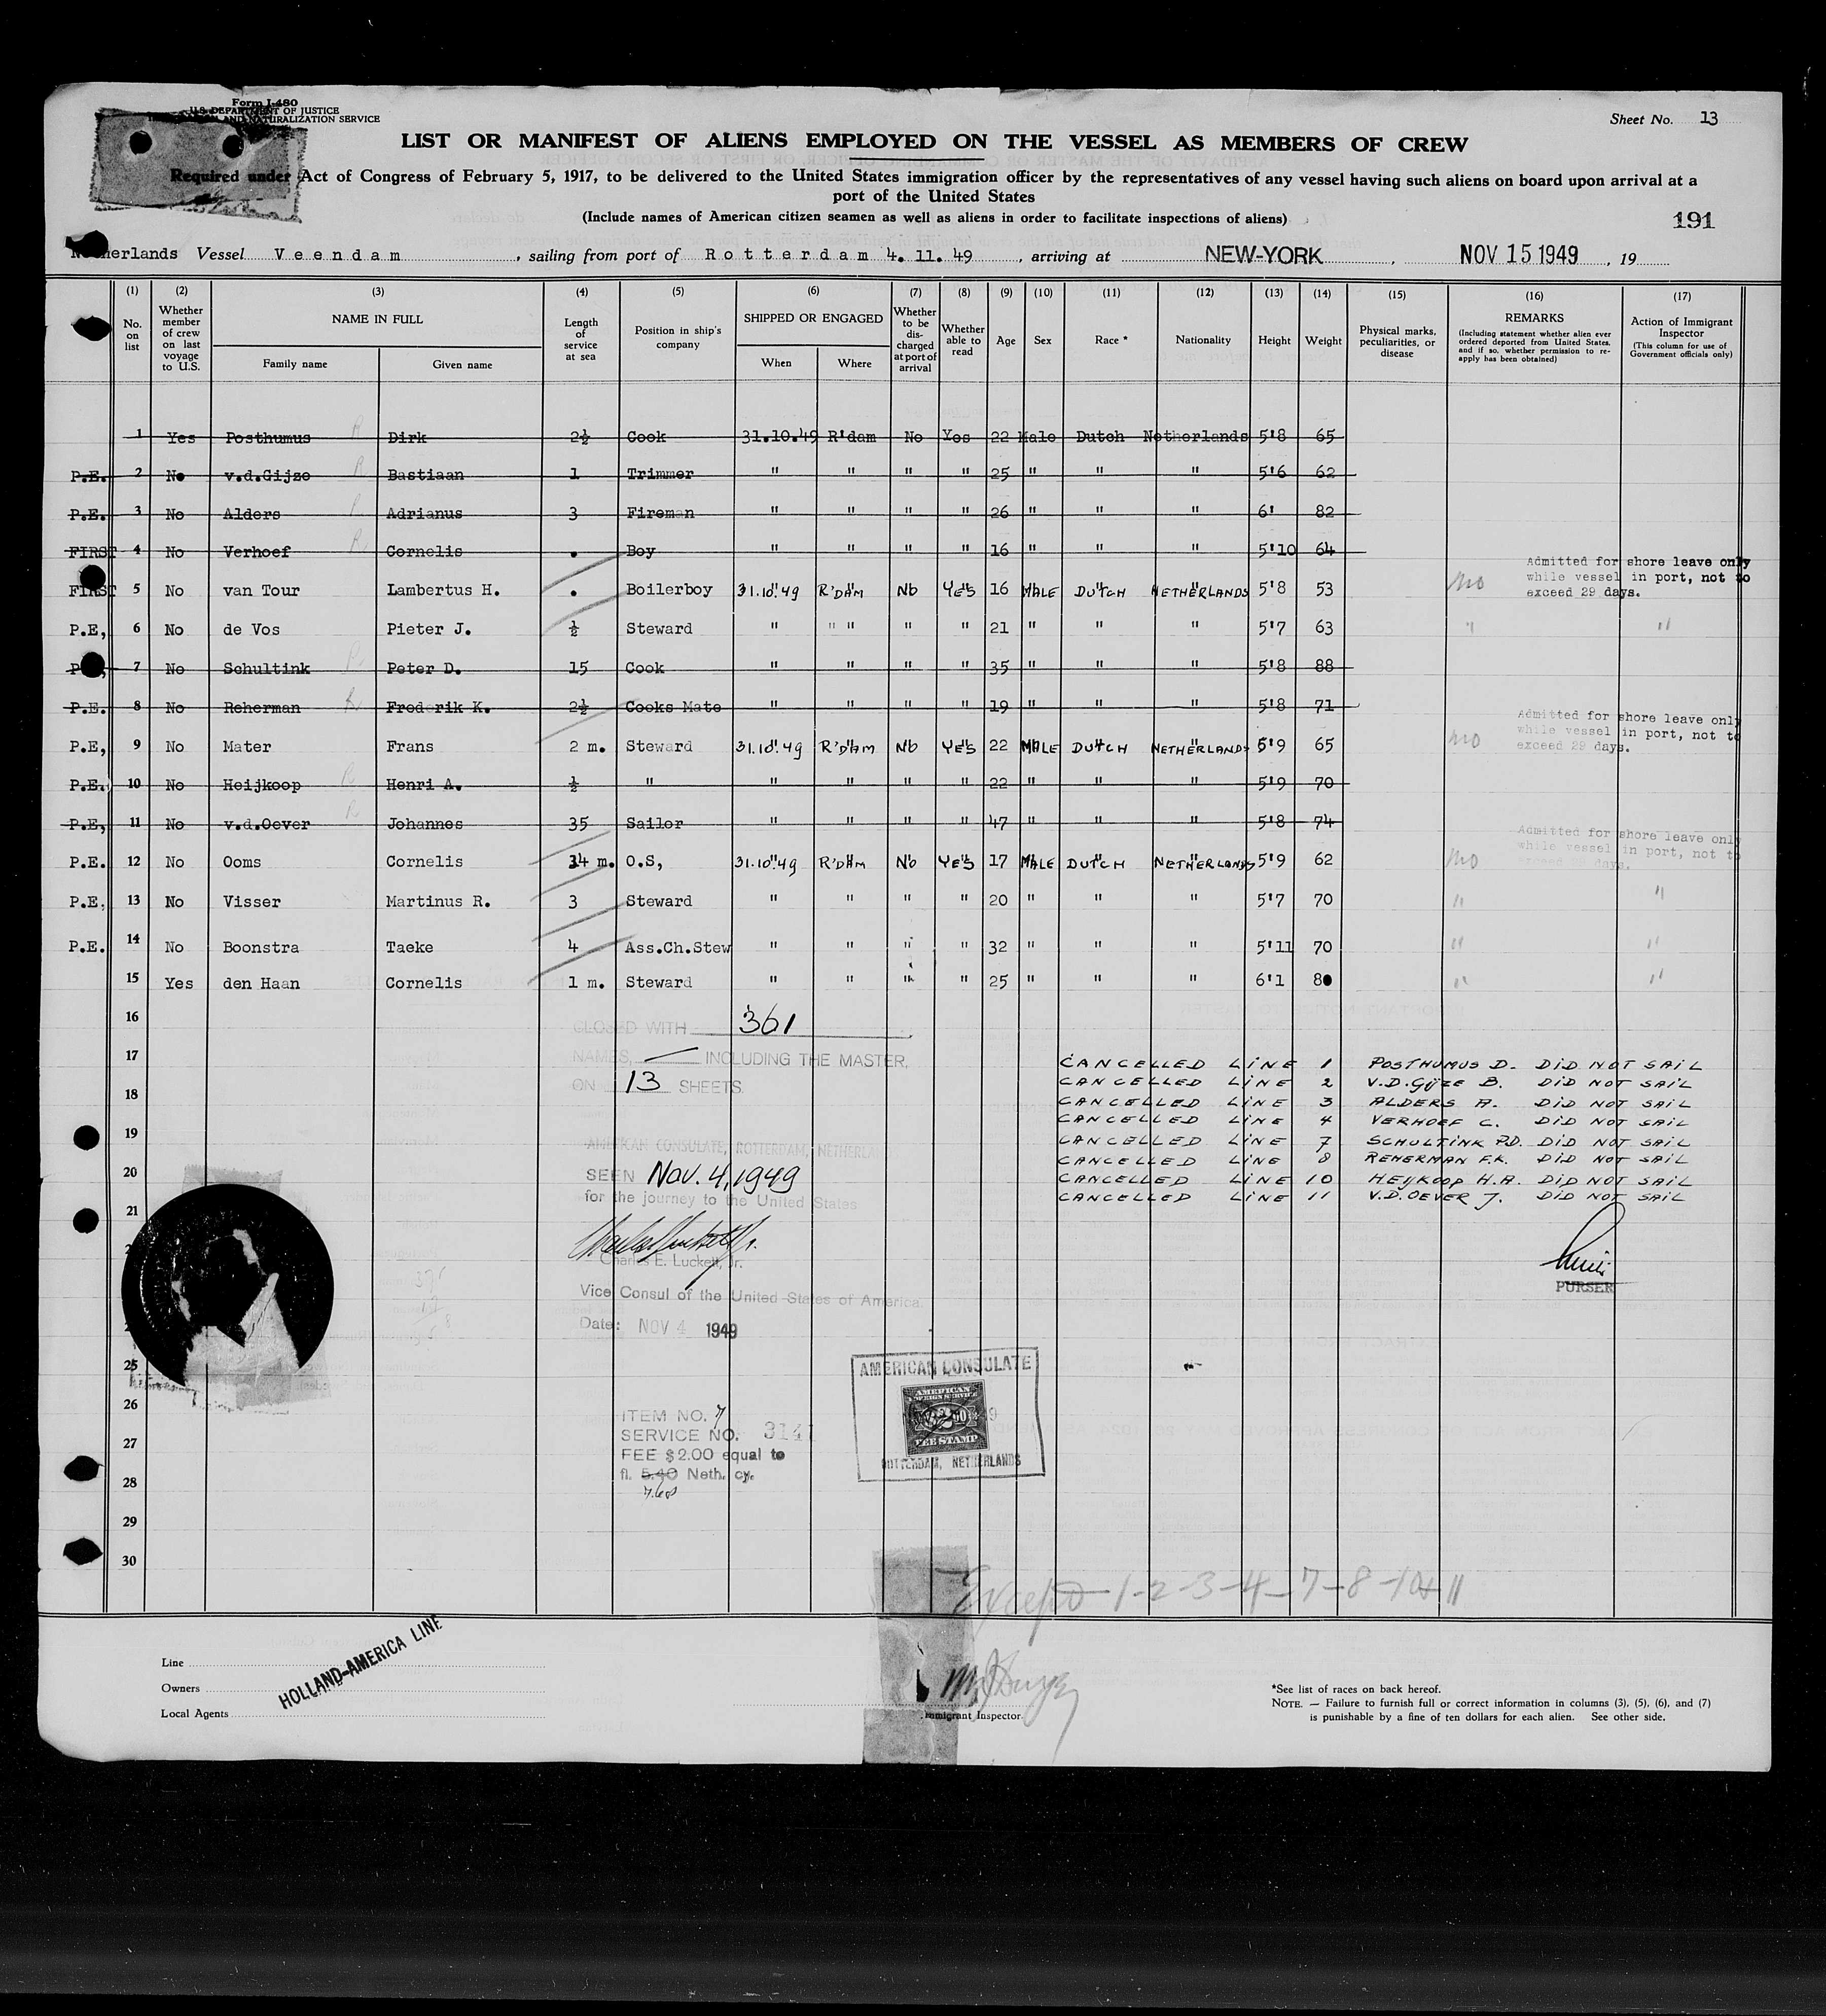 Form I-480
U.S. DEPARTMENT OF JUSTICE
AND NATURALIZATION SERVICE
Sheet No. 13
LIST OR MANIFEST OF ALIENS EMPLOYED ON THE VESSEL AS MEMBERS OF CREW
Required under Act of Congress of February 5, 1917, to be delivered to the United States immigration officer by the representatives of any vessel having such aliens on board upon arrival at a
port of the United States
(Include names of American citizen seamen as well as aliens in order to facilitate inspections of aliens)
191
Netherlands Vessel Veendam, sailing from port of Rotterdam 4. 11. 49, arriving at NEW-YORK, NOV 15 1949, 19
(1) (2) (3) (4) (5) (6) (7) (8) (9) (10) (11) (12) (13) (14) (15) (16) (17)
No. on list
Whether member of crew on last voyage to U.S.
NAME IN FULL
Family name
Given name
Length of service at sea
Position in ship's company
SHIPPED OR ENGAGED
When
Where
Whether to be discharged at port of arrival
Whether able to read
Age
Sex
Race *
Nationality
Height
Weight
Physical marks, peculiarities, or disease
REMARKS
(Including statement whether alien ever ordered deported from United States, and if so, whether permission to reapply has been obtained)
Action of Immigrant Inspector
(This column for use of Government officials only)
1 Yes Posthumus R Dirk 2½ Cook 31.10.49 R'dam No Yes 22 Male Dutch Netherlands 5'8 65
P.E. 2 No v.d.Gijze R Bastiaan 1 Trimmer " " " " 25 " " " 5'6 62
P.E. 3 No Alders R Adrianus 3 Fireman " " " " 26 " " " 6' 82
FIRST 4 No Verhoef R Cornelis . Boy " " " " 16 " " " 5'10 64
Admitted for shore leave only
while vessel in port, not to
exceed 29 days.
FIRST 5 No van Tour Lambertus H. . Boilerboy 31.10.49 R'DAM No YES 16 MALE DUTCH NETHERLANDS 5'8 53 no
P.E, 6 No de Vos Pieter J. ½ Steward " " " " " 21 " " " 5'7 63 " "
7 No Schultink R Peter D. 15 Cook " " " " 35 " " " 5'8 88
P.E. 8 No Reherman R Frederik K. 2½ Cooks Mate " " " " 19 " " " 5'8 71
Admitted for shore leave only
while vessel in port, not to
exceed 29 days.
P.E, 9 No Mater Frans 2 m. Steward 31.10.49 R'DAM No YES 22 MALE DUTCH NETHERLANDS 5'9 65 no
P.E. 10 No Heijkoop R Henri A. ½ " " " " " 22 " " " 5'9 70
P.E, 11 No v.d.Oever R Johannes 35 Sailor " " " " 47 " " " 5'8 74
Admitted for shore leave only
while vessel in port, not to
exceed 29 days.
P.E. 12 No Ooms Cornelis 34 m. O.S, 31.10.49 R'DAM No YES 17 MALE DUTCH NETHERLANDS 5'9 62 no
P.E. 13 No Visser Martinus R. 3 Steward " " " " 20 " " " 5'7 70 " "
P.E. 14 No Boonstra Taeke 4 Ass.Ch.Stew " " " " 32 " " " 5'11 70 " "
15 Yes den Haan Cornelis 1 m. Steward " " " " 25 " " " 6'1 80 " "
16
CLOSED WITH 361
17
NAMES, INCLUDING THE MASTER,
ON 13 SHEETS.
18
19
20
21
CANCELLED LINE 1 POSTHUMUS D. DID NOT SAIL
CANCELLED LINE 2 V.D.GYZE B. DID NOT SAIL
CANCELLED LINE 3 ALDERS A. DID NOT SAIL
CANCELLED LINE 4 VERHOEF C. DID NOT SAIL
CANCELLED LINE 7 SCHULTINK P.D. DID NOT SAIL
CANCELLED LINE 8 REHERMAN F.K. DID NOT SAIL
CANCELLED LINE 10 HEYKOOP H.A. DID NOT SAIL
CANCELLED LINE 11 V.D.OEVER J. DID NOT SAIL
PURSER
AMERICAN CONSULATE, ROTTERDAM, NETHERLANDS
SEEN Nov. 4, 1949
for the journey to the United States
Charles E. Luckett, Jr.
Vice Consul of the United States of America
Date: NOV 4 1949
25
26
27
28
29
30
AMERICAN CONSULATE
AMERICAN
FOREIGN SERVICE
FEE STAMP
ROTTERDAM, NETHERLANDS
ITEM NO. 7
SERVICE NO. 3141
FEE $2.00 equal to
fl. 5.40 Neth. cy.
7.60
Except 1-2-3-4-7-8-10+11
Line
Owners
Local Agents
HOLLAND-AMERICA LINE
Immigrant Inspector
*See list of races on back hereof.
NOTE. — Failure to furnish full or correct information in columns (3), (5), (6), and (7)
is punishable by a fine of ten dollars for each alien. See other side.